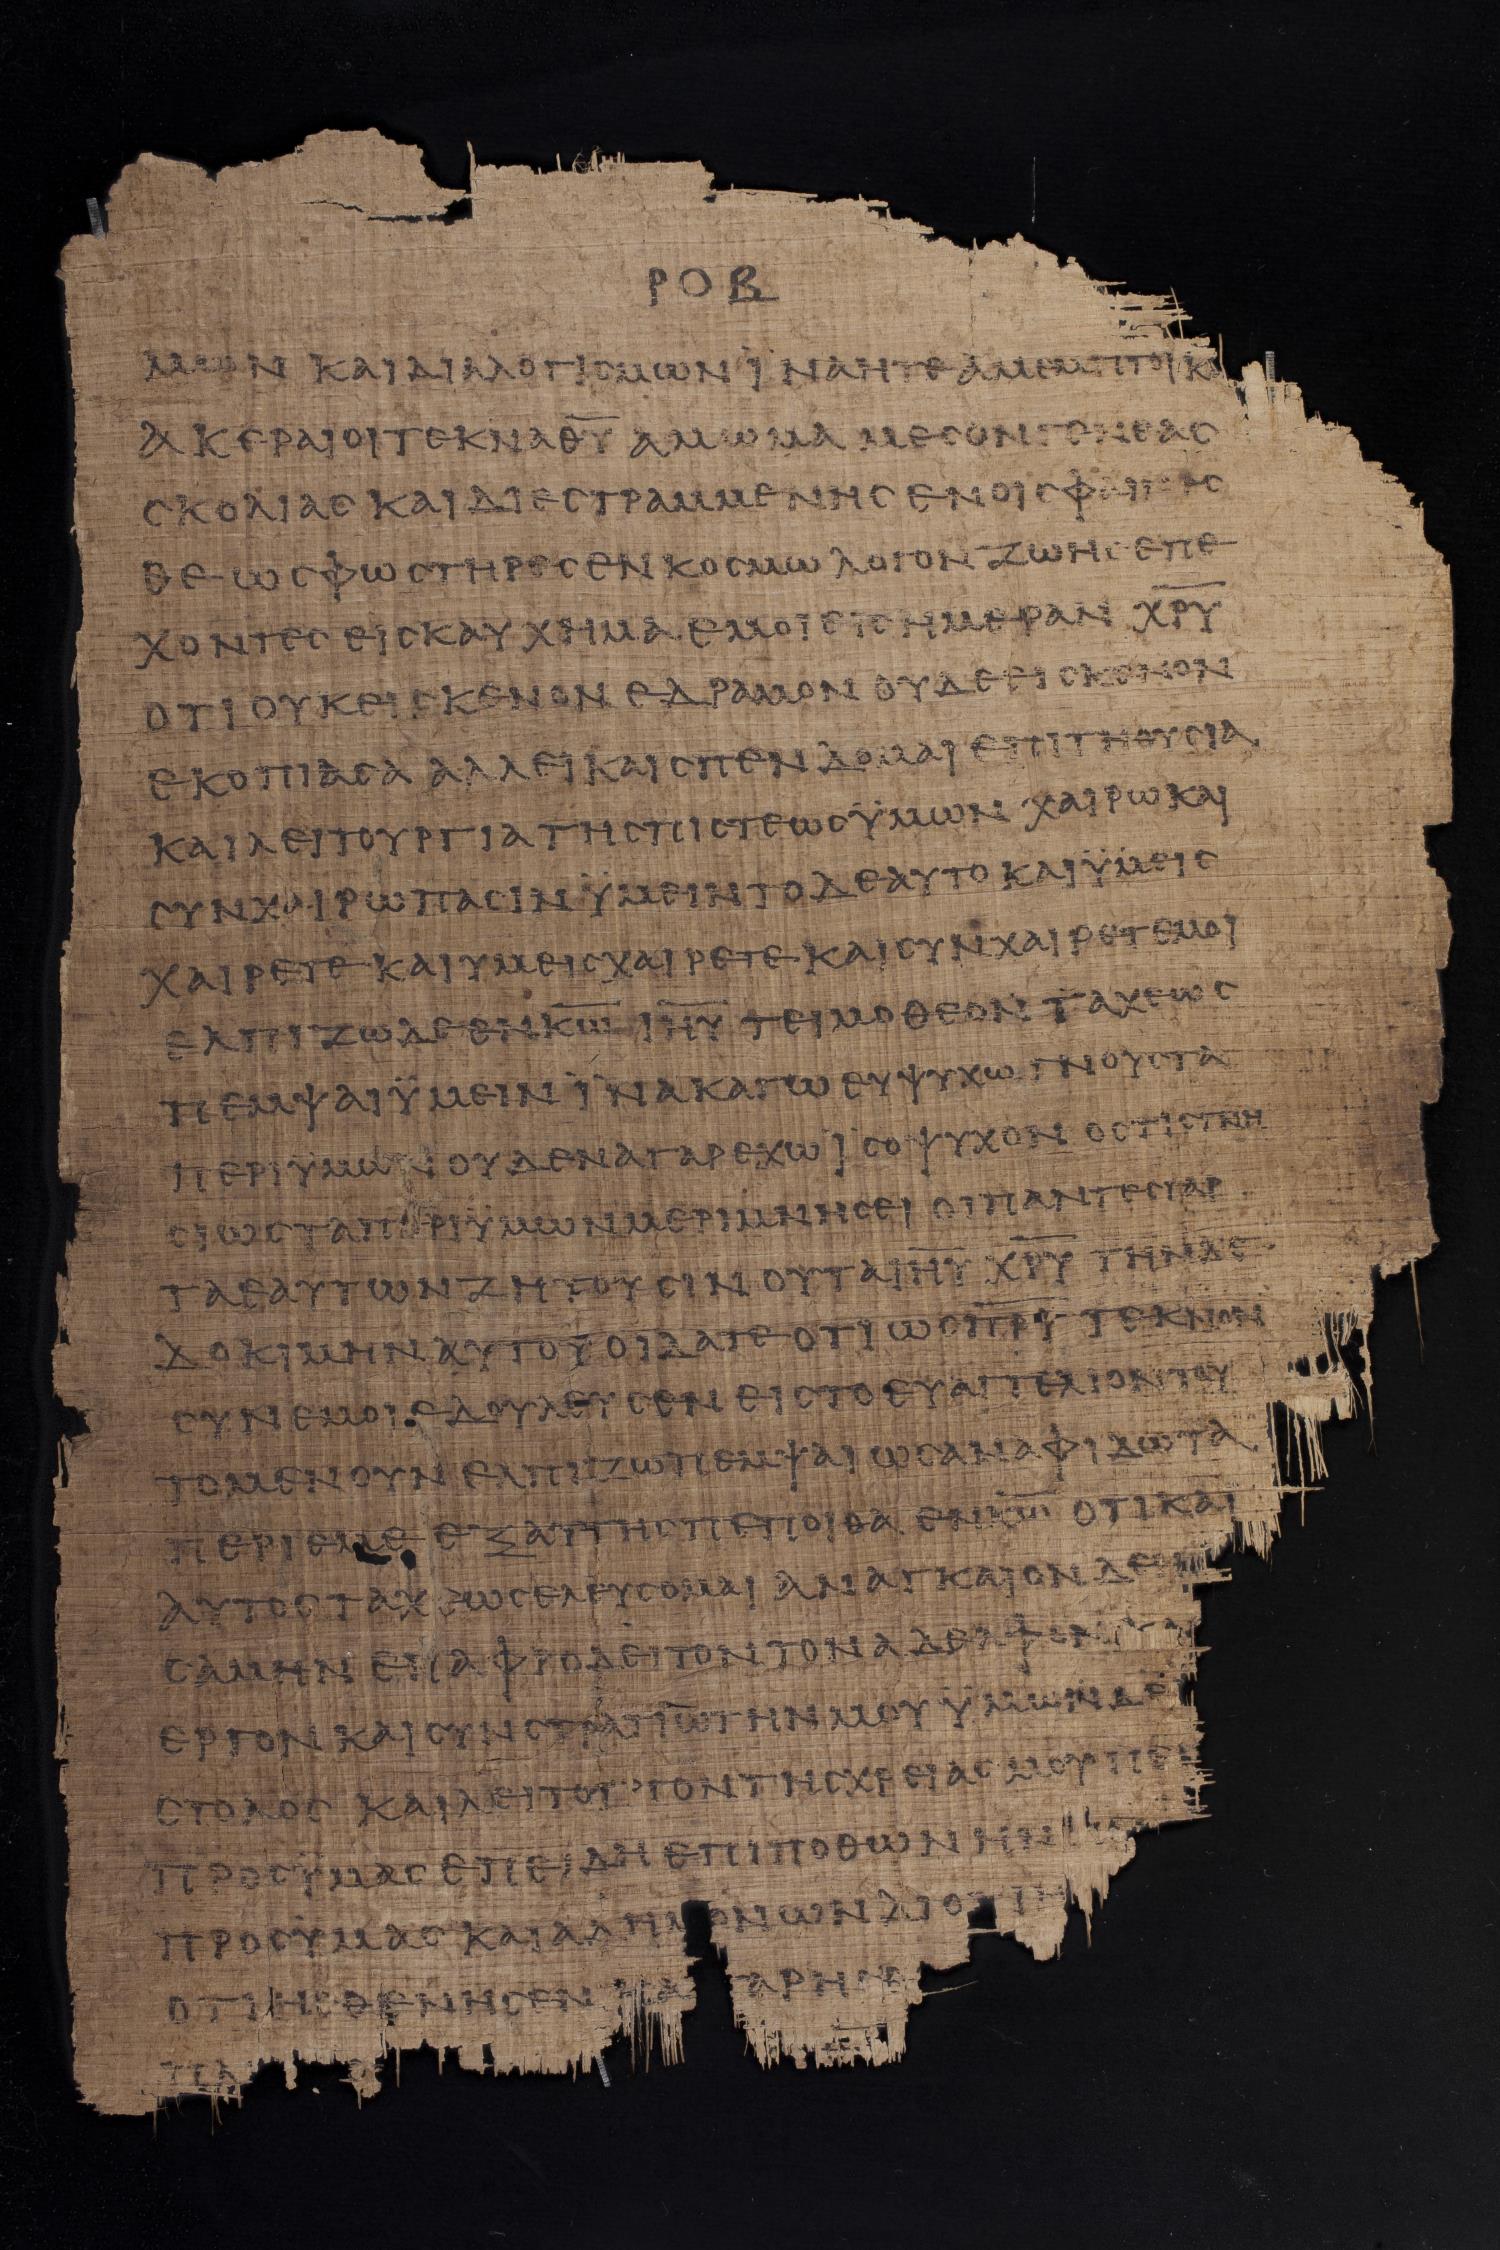 ΡΟΒ
ΜΩΝ ΚΑΙ ΔΙΑΛΟΓΙΣΜΩΝ ΪΝΑ ΗΤΕ ΑΜΕΜΠΤΟΙ Κ
ΑΚΕΡΑΙΟΙ ΤΕΚΝΑ Θ̅Υ̅ ΑΜΩΜΑ ΜΕΣΟΝ ΓΕΝΕΑΣ
ΣΚΟΛΙΑΣ ΚΑΙ ΔΙΕΣΤΡΑΜΜΕΝΗΣ ΕΝ ΟΙΣ
ΘΕ ΩΣ ΦΩΣΤΗΡΕΣ ΕΝ ΚΟΣΜΩ ΛΟΓΟΝ ΖΩΗΣ ΕΠΕ
ΧΟΝΤΕΣ ΕΙΣ ΚΑΥΧΗΜΑ ΕΜΟΙ ΕΙΣ ΗΜΕΡΑΝ Χ̅Ρ̅Υ̅
ΟΤΙ ΟΥΚ ΕΙΣ ΚΕΝΟΝ ΕΔΡΑΜΟΝ ΟΥΔΕ ΕΙΣ ΚΕΝΟΝ
ΕΚΟΠΙΑΣΑ ΑΛΛ ΕΙ ΚΑΙ ΣΠΕΝΔΟΜΑΙ ΕΠΙ ΤΗ ΘΥΣΙΑ
ΚΑΙ ΛΕΙΤΟΥΡΓΙΑ ΤΗΣ ΠΙΣΤΕΩΣ ΫΜΩΝ ΧΑΙΡΩ ΚΑΙ
ΣΥΝΧΑΙΡΩ ΠΑΣΙΝ ΫΜΕΙΝ ΤΟ ΔΕ ΑΥΤΟ ΚΑΙ ΫΜΕΙΣ
ΧΑΙΡΕΤΕ ΚΑΙ ΥΜΕΙΣ ΧΑΙΡΕΤΕ ΚΑΙ ΣΥΝΧΑΙΡΕΤΕ ΜΟΙ
ΕΛΠΙΖΩ ΔΕ ΕΝ Κ̅Ω̅ Ι̅Η̅Υ̅ ΤΕΙΜΟΘΕΟΝ ΤΑΧΕΩΣ
ΠΕΜΨΑΙ ΫΜΕΙΝ ΪΝΑ ΚΑΓΩ ΕΥΨΥΧΩ ΓΝΟΥΣ ΤΑ
ΠΕΡΙ ΥΜΩΝ ΟΥΔΕΝΑ ΓΑΡ ΕΧΩ ΪΣΟΨΥΧΟΝ ΟΣΤΙΣ ΓΝΗ
ΣΙΩΣ ΤΑ ΠΕΡΙ ΫΜΩΝ ΜΕΡΙΜΝΗΣΕΙ ΟΙ ΠΑΝΤΕΣ ΓΑΡ
ΤΑ ΕΑΥΤΩΝ ΖΗΤΟΥΣΙΝ ΟΥ ΤΑ Ι̅Η̅Υ̅ Χ̅Ρ̅Υ̅ ΤΗΝ ΔΕ
ΔΟΚΙΜΗΝ ΑΥΤΟΥ ΟΙΔΑΤΕ ΟΤΙ ΩΣ Π̅Ρ̅Ι̅ ΤΕΚΝΟΝ
ΣΥΝ ΕΜΟΙ ΕΔΟΥΛΕΥΣΕΝ ΕΙΣ ΤΟ ΕΥΑΓΓΕΛΙΟΝ ΤΟΥ
ΤΟ ΜΕΝ ΟΥΝ ΕΛΠΙΖΩ ΠΕΜΨΑΙ ΩΣ ΑΝ ΑΦΙΔΩ ΤΑ
ΠΕΡΙ ΕΜΕ ΕΞΑΥΤΗΣ ΠΕΠΟΙΘΑ ΕΝ Κ̅Ω̅ ΟΤΙ ΚΑΙ
ΑΥΤΟΣ ΤΑΧΕΩΣ ΕΛΕΥΣΟΜΑΙ ΑΝΑΓΚΑΙΟΝ ΔΕ
ΣΑΜΗΝ ΕΠΑΦΡΟΔΕΙΤΟΝ ΤΟΝ ΑΔΕΛΦΟΝ
ΕΡΓΟΝ ΚΑΙ ΣΥΝΣΤΡΑΤΙΩΤΗΝ ΜΟΥ ΫΜΩΝ ΔΕ
ΣΤΟΛΟΣ ΚΑΙ ΛΕΙΤΟΥΡΓΟΝ ΤΗΣ ΧΡΕΙΑΣ ΜΟΥ ΠΕ
ΠΡΟΣ ΫΜΑΣ ΕΠΕΙΔΗ ΕΠΙΠΟΘΩΝ ΗΝ
ΠΡΟΣ ΥΜΑΣ ΚΑΙ ΑΔΗΜΟΝΩΝ ΔΙΟΤΙ Η
ΟΤΙ ΗΣΘΕΝΗΣΕΝ ΚΑΙ ΓΑΡ ΗΣΘΕ